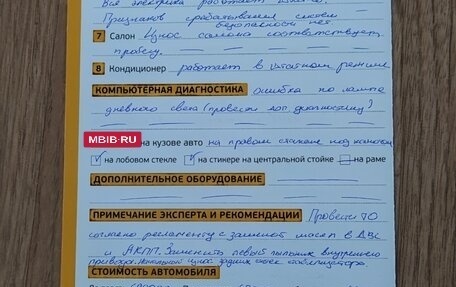 Вся электрика работает
Признаков срабатывания систем
безопасности нет.
7 Салон Износ салона соответствует
пробегу.
8 Кондиционер работает в штатном режиме
КОМПЬЮТЕРНАЯ ДИАГНОСТИКА ошибка по лампе
дневного света (провести доп. диагностику)
MBIB.RU на кузове авто на правом стакане под капотом
на лобовом стекле на стикере на центральной стойке на раме
ДОПОЛНИТЕЛЬНОЕ ОБОРУДОВАНИЕ
ПРИМЕЧАНИЕ ЭКСПЕРТА И РЕКОМЕНДАЦИИ Провести ТО
согласно регламенту с заменой масел в ДВС
и АКПП. Заменить левый пыльник внутреннего
привода. Начальный износ задних втулок стабилизатора.
СТОИМОСТЬ АВТОМОБИЛЯ